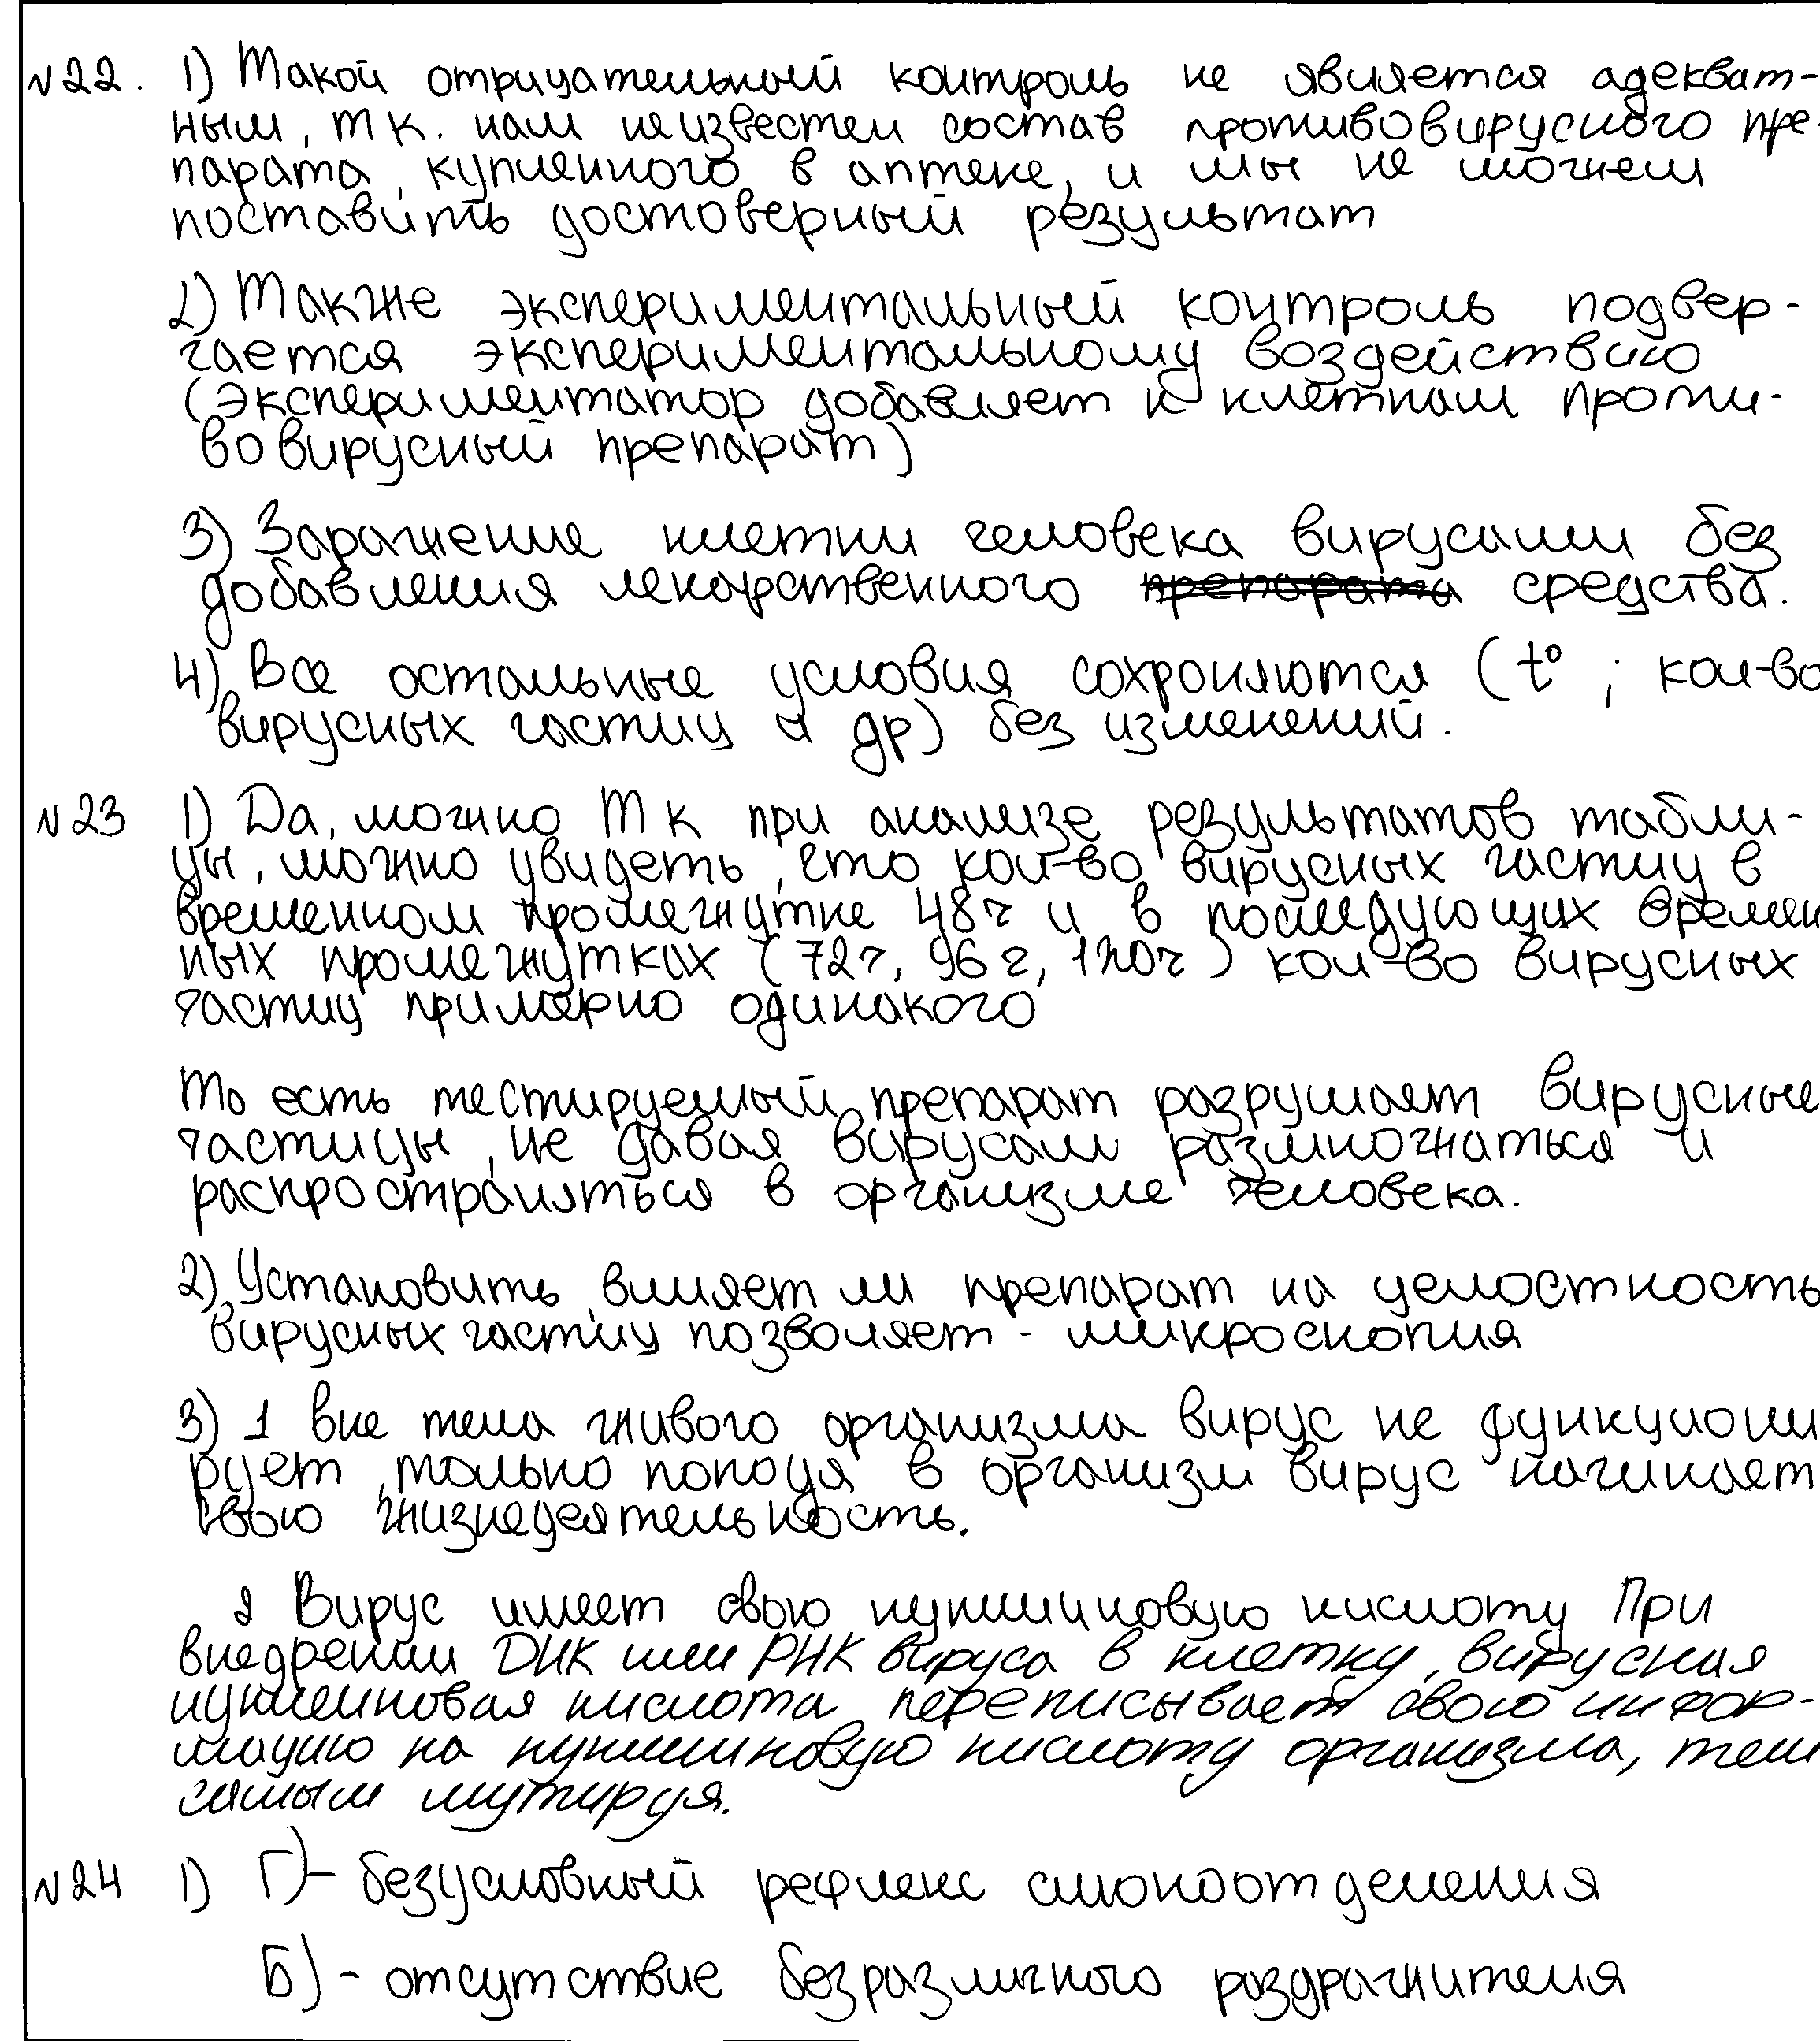 №22. 1) Такой отрицательный контроль не является адекват-
ным, т к. нам неизвестен состав противовирусного пре-
парата, купленного в аптеке, и мы не можем
поставить достоверный результат
2) Также экспериментальный контроль подвер-
гается экспериментальному воздействию
(экспериментатор добавляет к клеткам проти-
вовирусный препарат)
3) Заражение клетки человека вирусами без
добавления лекарственного препарата средства.
4) Все остальные условия сохраняются (t° ; кол-во
вирусных частиц и др) без изменений.
№23 1) Да, можно т к при анализе результатов табли-
цы, можно увидеть, что кол-во вирусных частиц в
временном промежутке 48ч и в последующих времен
ных промежутках (72ч, 96ч, 120ч) кол-во вирусных
частиц примерно одинакого
То есть тестируемый препарат разрушает вирусные
частицы, не давая вирусам размножаться и
распространяться в организме человека.
2) Установить, влияет ли препарат на целостность
вирусных частиц позволяет - микроскопия
3) 1 вне тела живого организма вирус не функциони
рует, только попадя в организм вирус начинает
свою жизнедеятельность.
2 Вирус имеет свою нуклеиновую кислоту При
внедрении ДНК или РНК вируса в клетку, вирусная
нуклеиновая кислота переписывает свою инфор-
мацию на нуклеиновую кислоту организма, тем
самым мутируя.
№24 1) Г) - безусловный рефлекс слюноотделения
Б) - отсутствие безразличного раздражителя